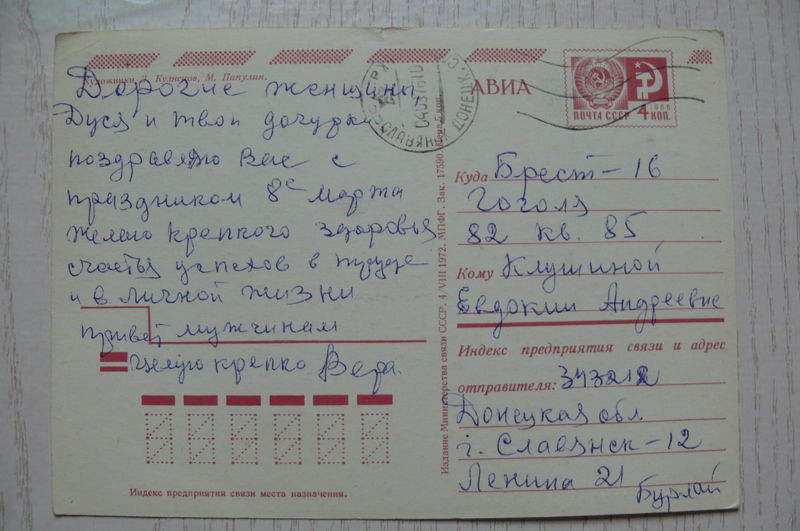 Художники Л. Кузнецов, М. Папулин.
Дорогие женщины,
Дуся и твои дочурки
поздравляю Вас с
праздником 8е Марта
желаю крепкого здоровья
счастья успехов в труде
и в личной жизни
привет мужчинам
Целую крепко Вера.
Индекс предприятия связи места назначения.
Издание Министерства связи СССР. 4/VIII 1972. МПФГ. Зак. 17590. Цена 5 коп.
АВИА
ПОЧТА СССР
1966
4 КОП.
ДОНЕЦК
Куда Брест-16
Гоголя
82 кв. 85
Кому Клушиной
Евдокии Андреевне
Индекс предприятия связи и адрес
отправителя: 343212
Донецкая обл.
г. Славянск-12
Ленина 21
Бурлай